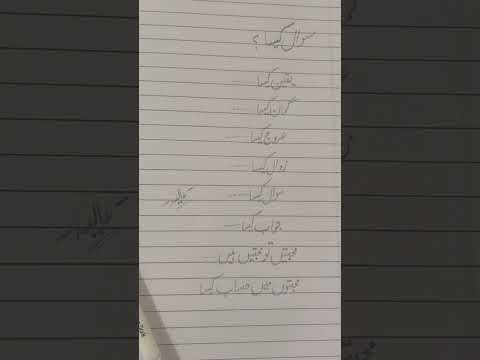 سوال کیسا ؟
یقین کیسا ---
گمان کیسا ----
عروج کیسا ---
زوال کیسا ---
سوال کیسا ----
جواب کیسا ---
محبتیں تو محبتیں ہیں ---
محبتوں میں حساب کیسا